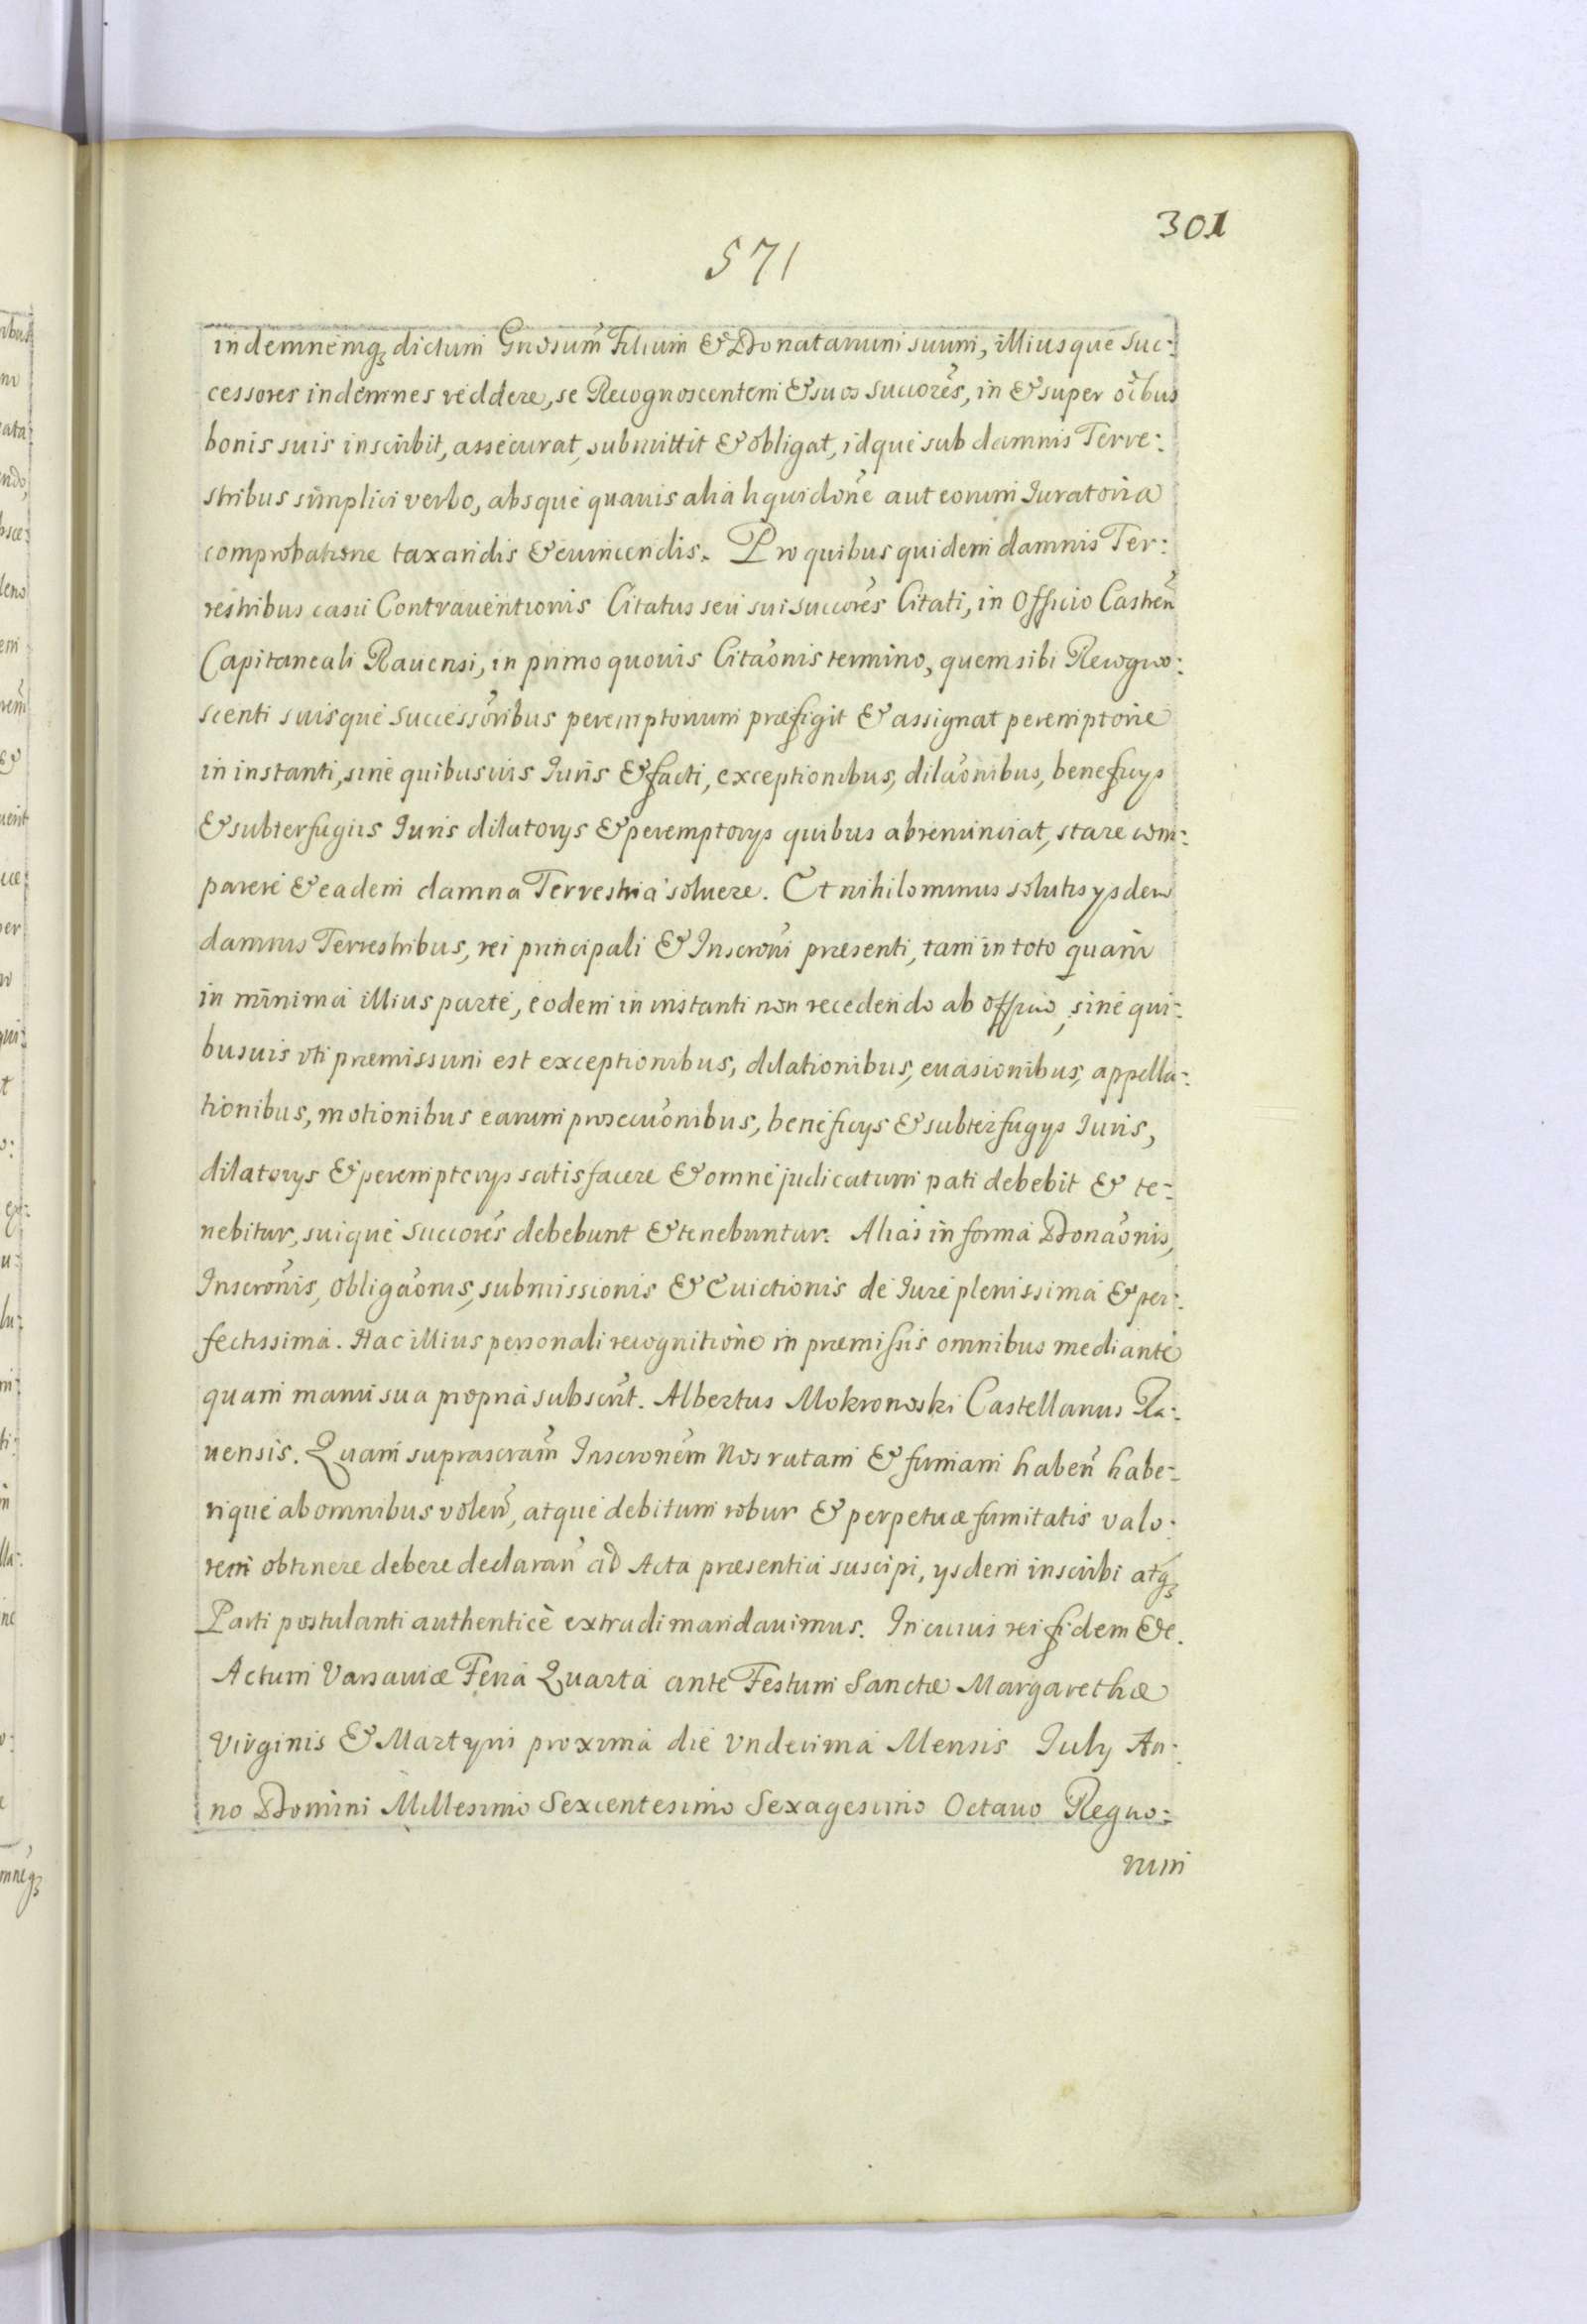 301
571
indemnemq₃ dictum Gnosum̃ Filium & Donatarium suum, illiusque Suc:
cessores indemnes reddere, se Recognoscentem & suos Succorẽs, in & super oĩbus
bonis suis inscribit, assecurat, submittit & obligat, idque sub damnis Terre:
stribus simplici verbo, absque quauis alia liquidoñe aut eorum Iuratoria
comprobatione taxandis & euincendis. Pro quibus quidem damnis Ter:
restribus casu Contrauentionis Citatus seu sui succorẽs Citati, in Officio Castreñ
Capitaneali Rauensi, in primo quouis Citaõnis termino, quem sibi Recogno:
scenti suisque Successoribus peremptorium præfigit & assignat peremptorie
in instanti, sine quibusuis Iuris & facti, exceptionibus, dilaõnibus, beneficys
& subterfugiis Iuris dilatorys & peremptorys quibus abrenunciat, stare com:
parere & eadem damna Terrestria soluere. Et nihilominus solutis ysdem
damnis Terrestribus, rei principali & Inscroñi præsenti, tam in toto quam
in minima illius parte, eodem in instanti non recedendo ab officio, sine qui:
busuis vti præmissum est exceptionibus, dilationibus, euasionibus, appella:
tionibus, motionibus earum prosecuõnibus, beneficys & subterfugys Iuris,
dilatorys & peremptorys satisfacere & omne judicatum pati debebit & te:
nebitur, suique Succorẽs debebunt & tenebuntur. Alias in forma Donaõnis,
Inscroñis, Obligaõnis, submissionis & Euictionis de Iure plenissima & per:
fectissima. Hac illius personali recognitione in præmissis omnibus mediante
quam manu sua propria subscrĩt. Albertus Mokronoski Castellanus Ra:
uensis. Quam suprascram̃ Inscronẽm Nos ratam & firmam habeñ habe:
rique ab omnibus voleñ, atque debitum robur & perpetuæ firmitatis valo:
rem obtinere debere declarañ ad Acta præsentia suscipi, ysdem inscribi atq₃
Parti postulanti authenticè extradi mandauimus. In cuius rei fidem &c.
Actum Varsauiæ Feria Quarta ante Festum Sanctæ Margarethæ
Virginis & Martyris proxima die Vndecima Mensis July An:
no Domini Millesimo Sexcentesimo Sexagesimo Octauo Regno:
rum